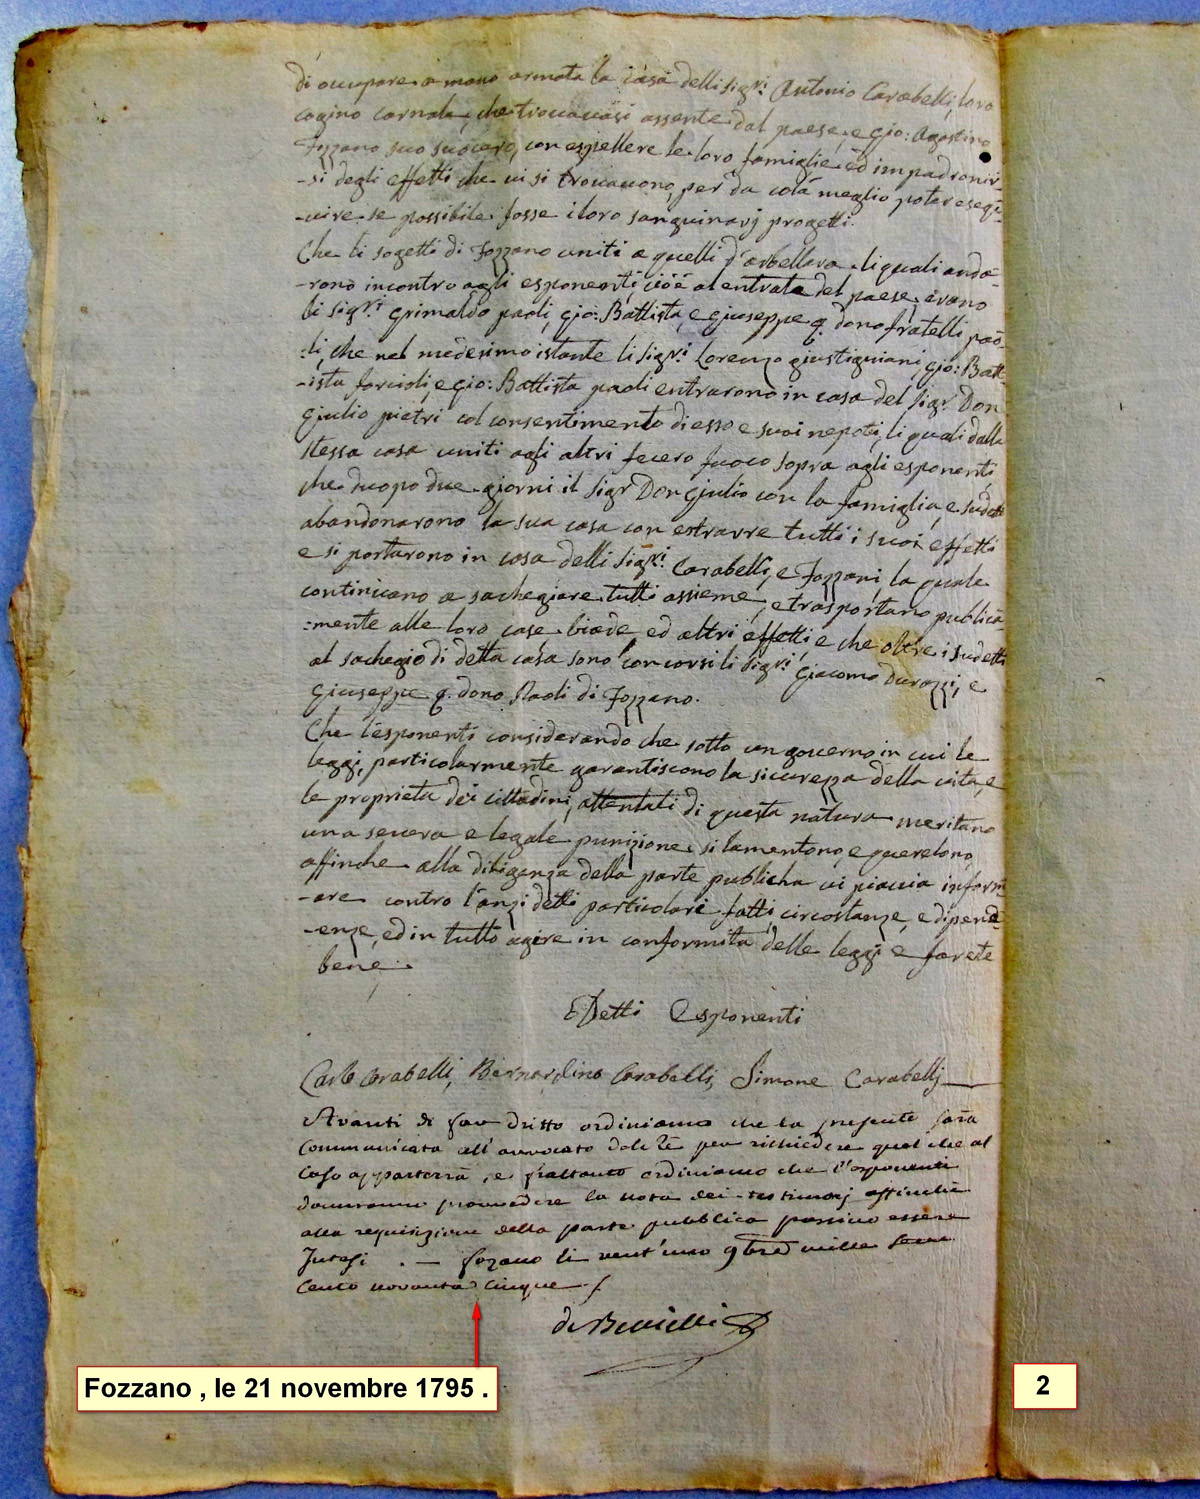 di occupare a mano armata la casa delli Sigri. Antonio Carabelli, loro
cogino carnale, che trovavasi assente dal paese, e gio: Agostino
Fozzano suo suocero, con espellere le loro famiglie ed impadronir-
-si degli effetti che vi si trovavono, per da colà meglio poter eseq-
-uire se possibile fosse i loro sanguinarj progetti.
Che li sogetti di Fozzano uniti a quelli d'arbellara li quali anda-
-rono incontro agli esponenti cioè al entrata del paese, erano
li sigri. grimaldo paoli, gio: Battista, e giuseppe q. dono fratelli pao-
-li, che nel medesimo istante li Sigri. Lorenzo giustigniani, gio: Batt-
-ista forcioli, e gio: Battista paoli entrarono in casa del Sigr. Don
giulio pietri col consentimento di esso e suoi nepoti, li quali dalla
stessa casa uniti agli altri fecero fuoco sopra agli esponenti
che duopo due giorni il Sigr. Don giulio con la famiglia, e sudetti
abandonarono la sua casa con estrarre tutti i suoi effetti
e si portarono in casa delli Sigri. Carabelli, e Fozzani, la quale
continuano a sachegiare tutti assieme, e trasportano publica-
-mente alle loro case biade ed altri effetti, e che oltre i sudetti
al sachegio di detta casa sono concorsi li Sigri. Giacomo Durazzi, e
Giuseppe q. dono Paoli di Fozzano.
Che l'esponenti considerando che sotto un governo in cui le
leggi, particolarmente garantiscono la sicurezza della vita, e
le proprietà dei cittadini, attentati di questa natura meritano
una severa e legale punizione, si lamentono, e querelono,
affinche alla diligenza della parte publicha vi piaccia inform-
-are contro l'anzi detti particolari fatti, circostanze, e dipend-
-enze, ed in tutto agire in conformità delle leggi e farete
bene.
Detti Esponenti
Carlo Carabelli, Bernardino Carabelli, Simone Carabelli
Avanti di far dritto ordiniamo che la presente sarà
Communicata all'avvocato del Rè per richiedere quel che al
Caso appartenà, e frattanto ordiniamo che l'esponenti
doveranno provvedere la nota dei testimonj affinchè
alla requisizione della parte pubblica possino essere
Intesi. — Fozano li vent'uno 9bre mille sette
Cento novanta cinque
Fozzano , le 21 novembre 1795 .
2